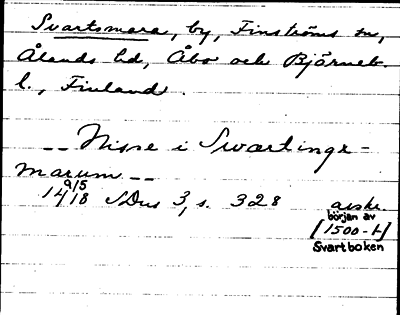 Svartsmara, by, Finströms sn,
Ålands hd, Åbo och Björneb.
l., Finland.
-- Nisse i Swartingx-
marum --
14 9/5 18 SDns 3, s. 328 avskr.
början av
[1500-t]
Svartboken